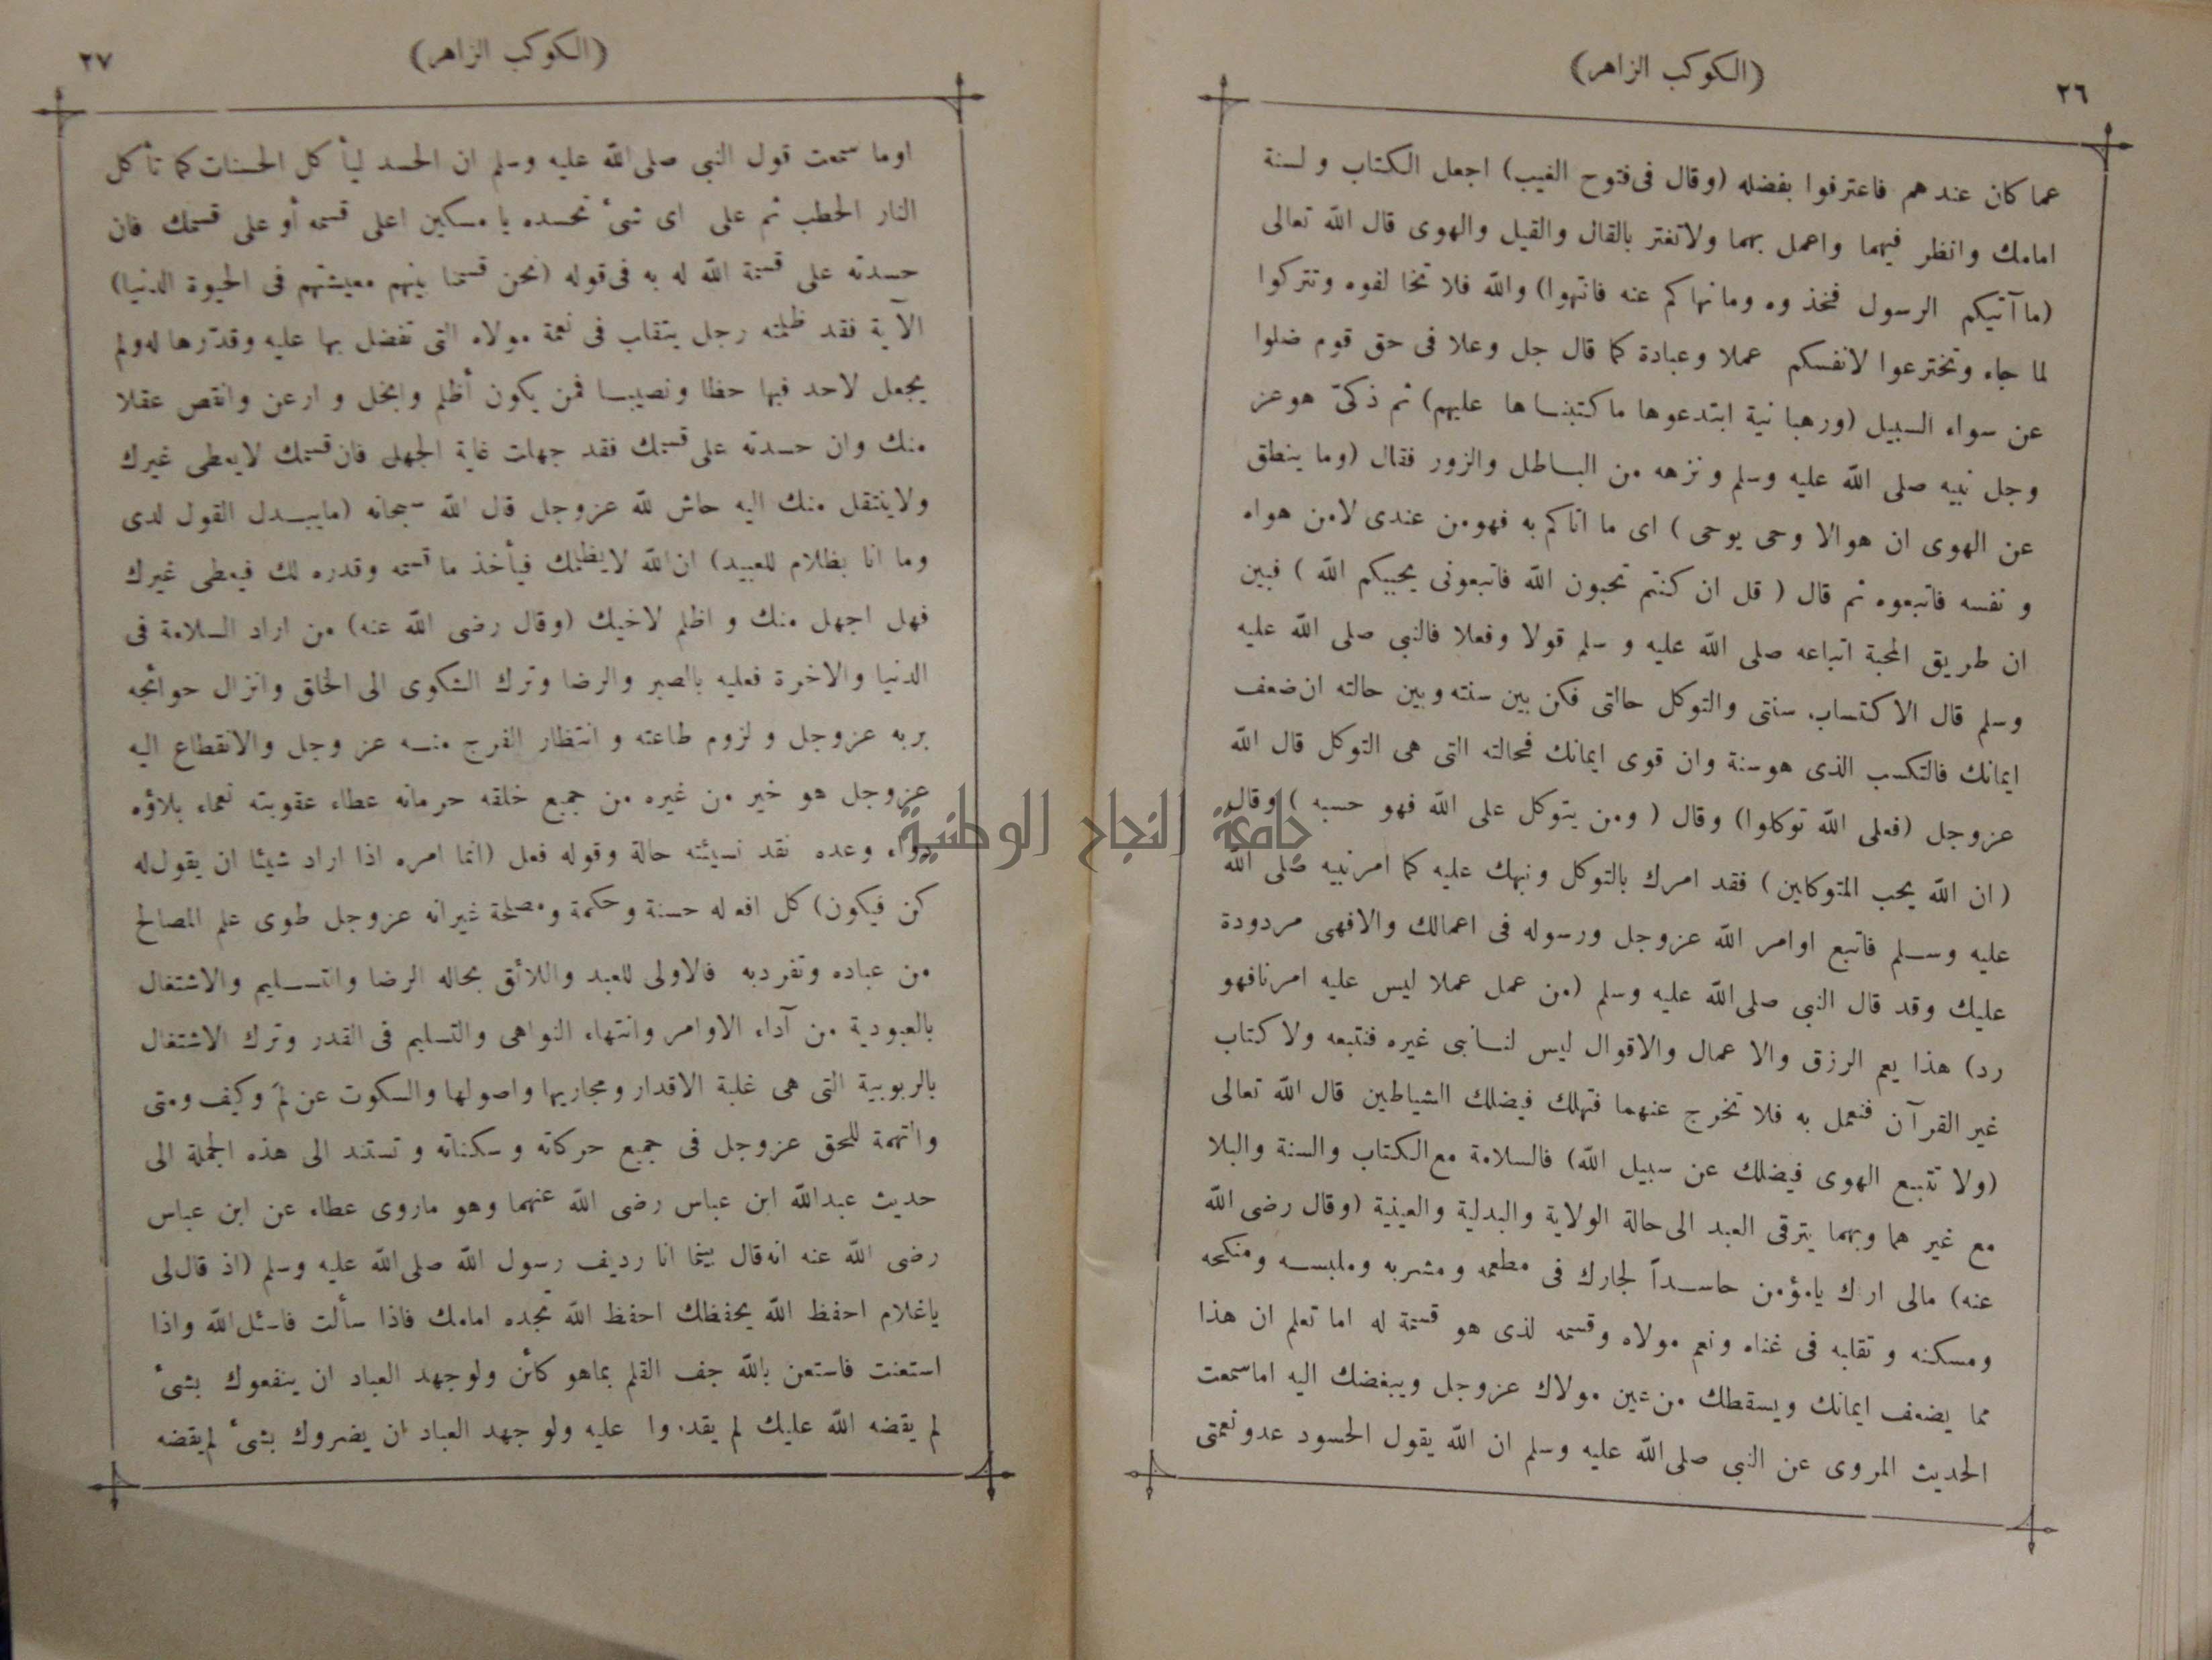 ٢٦
(الكوكب الزاهر)
عما كان عندهم فاعترفوا بفضله (وقال فى فتوح الغيب) اجعل الكتاب و لسنة
امامك وانظر فيهما واعمل بهما ولاتغتر بالقال والقيل والهوى قال الله تعالى
(ما آتيكم الرسول فخذ وه ومانها كم عنه فانتهوا) والله فلا تخا لفوه وتتركوا
لما جاء وتخترعوا لانفسكم عملا وعبادة كما قال جل وعلا فى حق قوم ضلوا
عن سواء السبيل (ورهبا نية ابتدعوها ماكتبنـاها عليهم) ثم ذكىّ هوعز
وجل نبيه صلى الله عليه وسلم و نزهه من البـاطل والزور فقال (وما ينطق
عن الهوى ان هوالا وحى يوحى) اى ما اتاكم به فهومن عندى لامن هواه
و نفسه فاتبعوه ثم قال (قل ان كنتم تحبون الله فاتبعونى يحببكم الله) فبين
ان طريق المحبة اتباعه صلى الله عليه و سلم قولا وفعلا فالنبى صلى الله عليه
وسلم قال الاكتساب سنتى والتوكل حالتى فكن بين سنته وبين حالته ان ضعف
ايمانك فالتكسب الذى هوسنة وان قوى ايمانك فحالته التى هى التوكل قال الله
عزوجل (فعلى الله توكلوا) وقال (ومن يتوكل على الله فهو حسبه) وقال
(ان الله يحب المتوكلين) فقد امرك بالتوكل ونبهك عليه كما امرنبيه صلى الله
عليه وسـلم فاتبع اوامر الله عزوجل ورسوله فى اعمالك والافهى مردودة
عليك وقد قال النبى صلى الله عليه وسلم (من عمل عملا ليس عليه امرنافهو
رد) هذا يعم الرزق والا عمال والاقوال ليس لنـانبى غيره فنتبعه ولا كتاب
غير القرآن فنعمل به فلا تخرج عنهما فتهلك فيضلك الشياطين قال الله تعالى
(ولا تتبع الهوى فيضلك عن سبيل الله) فالسلامة مع الكتاب والسنة والبلا
مع غير هما وبهما يترقى العبد الى حالة الولاية والبدلية والعينية (وقال رضى الله
عنه) مالى ارك يامؤمن حاسـداً لجارك فى مطعمه ومشربه وملبسـه ومنكحه
ومسكنه و تقلبه فى غناه ونعم مولاه وقسمه لذى هو قسمة له اما تعلم ان هذا
مما يضعف ايمانك ويسقطك من عين مولاك عزوجل ويبغضك اليه اماسمعت
الحديث المروى عن النبى صلى الله عليه وسلم ان الله يقول الحسود عدو نعمتى
٢٧
(الكوكب الزاهر)
اوما سمعت قول النبى صلى الله عليه وسلم ان الحسد ليأ كل الحسنات كما تأكل
النار الحطب ثم على اى شئ تحسده يا مسكين اعلى قسمه أو على قسمك فان
حسدته على قسمة الله له به فى قوله (نحن قسمنا بينهم معيشتهم فى الحيوة الدنيا)
الآية فقد ظلمته رجل يتقلب فى نعمة مولاه التى تفضل بها عليه وقدّرها له ولم
يجعل لاحد فيها حظا ونصيبـا فمن يكون أظلم وابخل و ارعن وانقص عقلا
منك وان حسدته على قسمتك فقد جهلت غاية الجهل فان قسمتك لايعطى غيرك
ولاينتقل منك اليه حاش لله عزوجل قال الله سبحانه (مايبـدل القول لدى
وما انا بظلام للعبيد) ان الله لايظلمك فيأخذ ما قسمه وقدره لك فيعطى غيرك
فهل اجهل منك و اظلم لاخيك (وقال رضى الله عنه) من اراد السلامة فى
الدنيا والاخرة فعليه بالصبر والرضا وترك الشكوى الى الخلق وانزال حوائجه
بربه عزوجل و لزوم طاعته و انتظار الفرج منـه عز وجل والانقطاع اليه
عزوجل هو خير من غيره من جميع خلقه حرمانه عطاء عقوبته نعماء بلاؤه
دواء وعده نقد نسيئته حالة وقوله فعل (انما امره اذا اراد شيئا ان يقول له
كن فيكون) كل افعله حسنة وحكمة ومصلحة غيرانه عزوجل طوى علم المصالح
من عباده وتفردبه فالاولى للعبد واللائق بحاله الرضا والتسـليم والاشتغال
بالعبودية من آداء الاوامر وانتهاء النواهى والتسليم فى القدر وترك الاشتغال
بالربوبية التى هى غلبة الاقدار ومجاريها واصولها والسكوت عن لمَ وكيف ومتى
والتهمة للحق عزوجل فى جميع حركاته وسكناته وتستند الى هذه الجملة الى
حديث عبدالله ابن عباس رضى الله عنهما وهو ماروى عطاء عن ابن عباس
رضى الله عنه انه قال بينما انا رديف رسول الله صلى الله عليه وسلم (اذ قال لى
ياغلام احفظ الله يحفظك احفظ الله تجده امامك فاذا سألت فاسئل الله واذا
استعنت فاستعن بالله جف القلم بماهو كائن ولوجهد العباد ان ينفعوك بشئ
لم يقضه الله عليك لم يقدروا عليه ولو جهد العباد ان يضروك بشئ لم يقضه
جامعة النجاح الوطنية